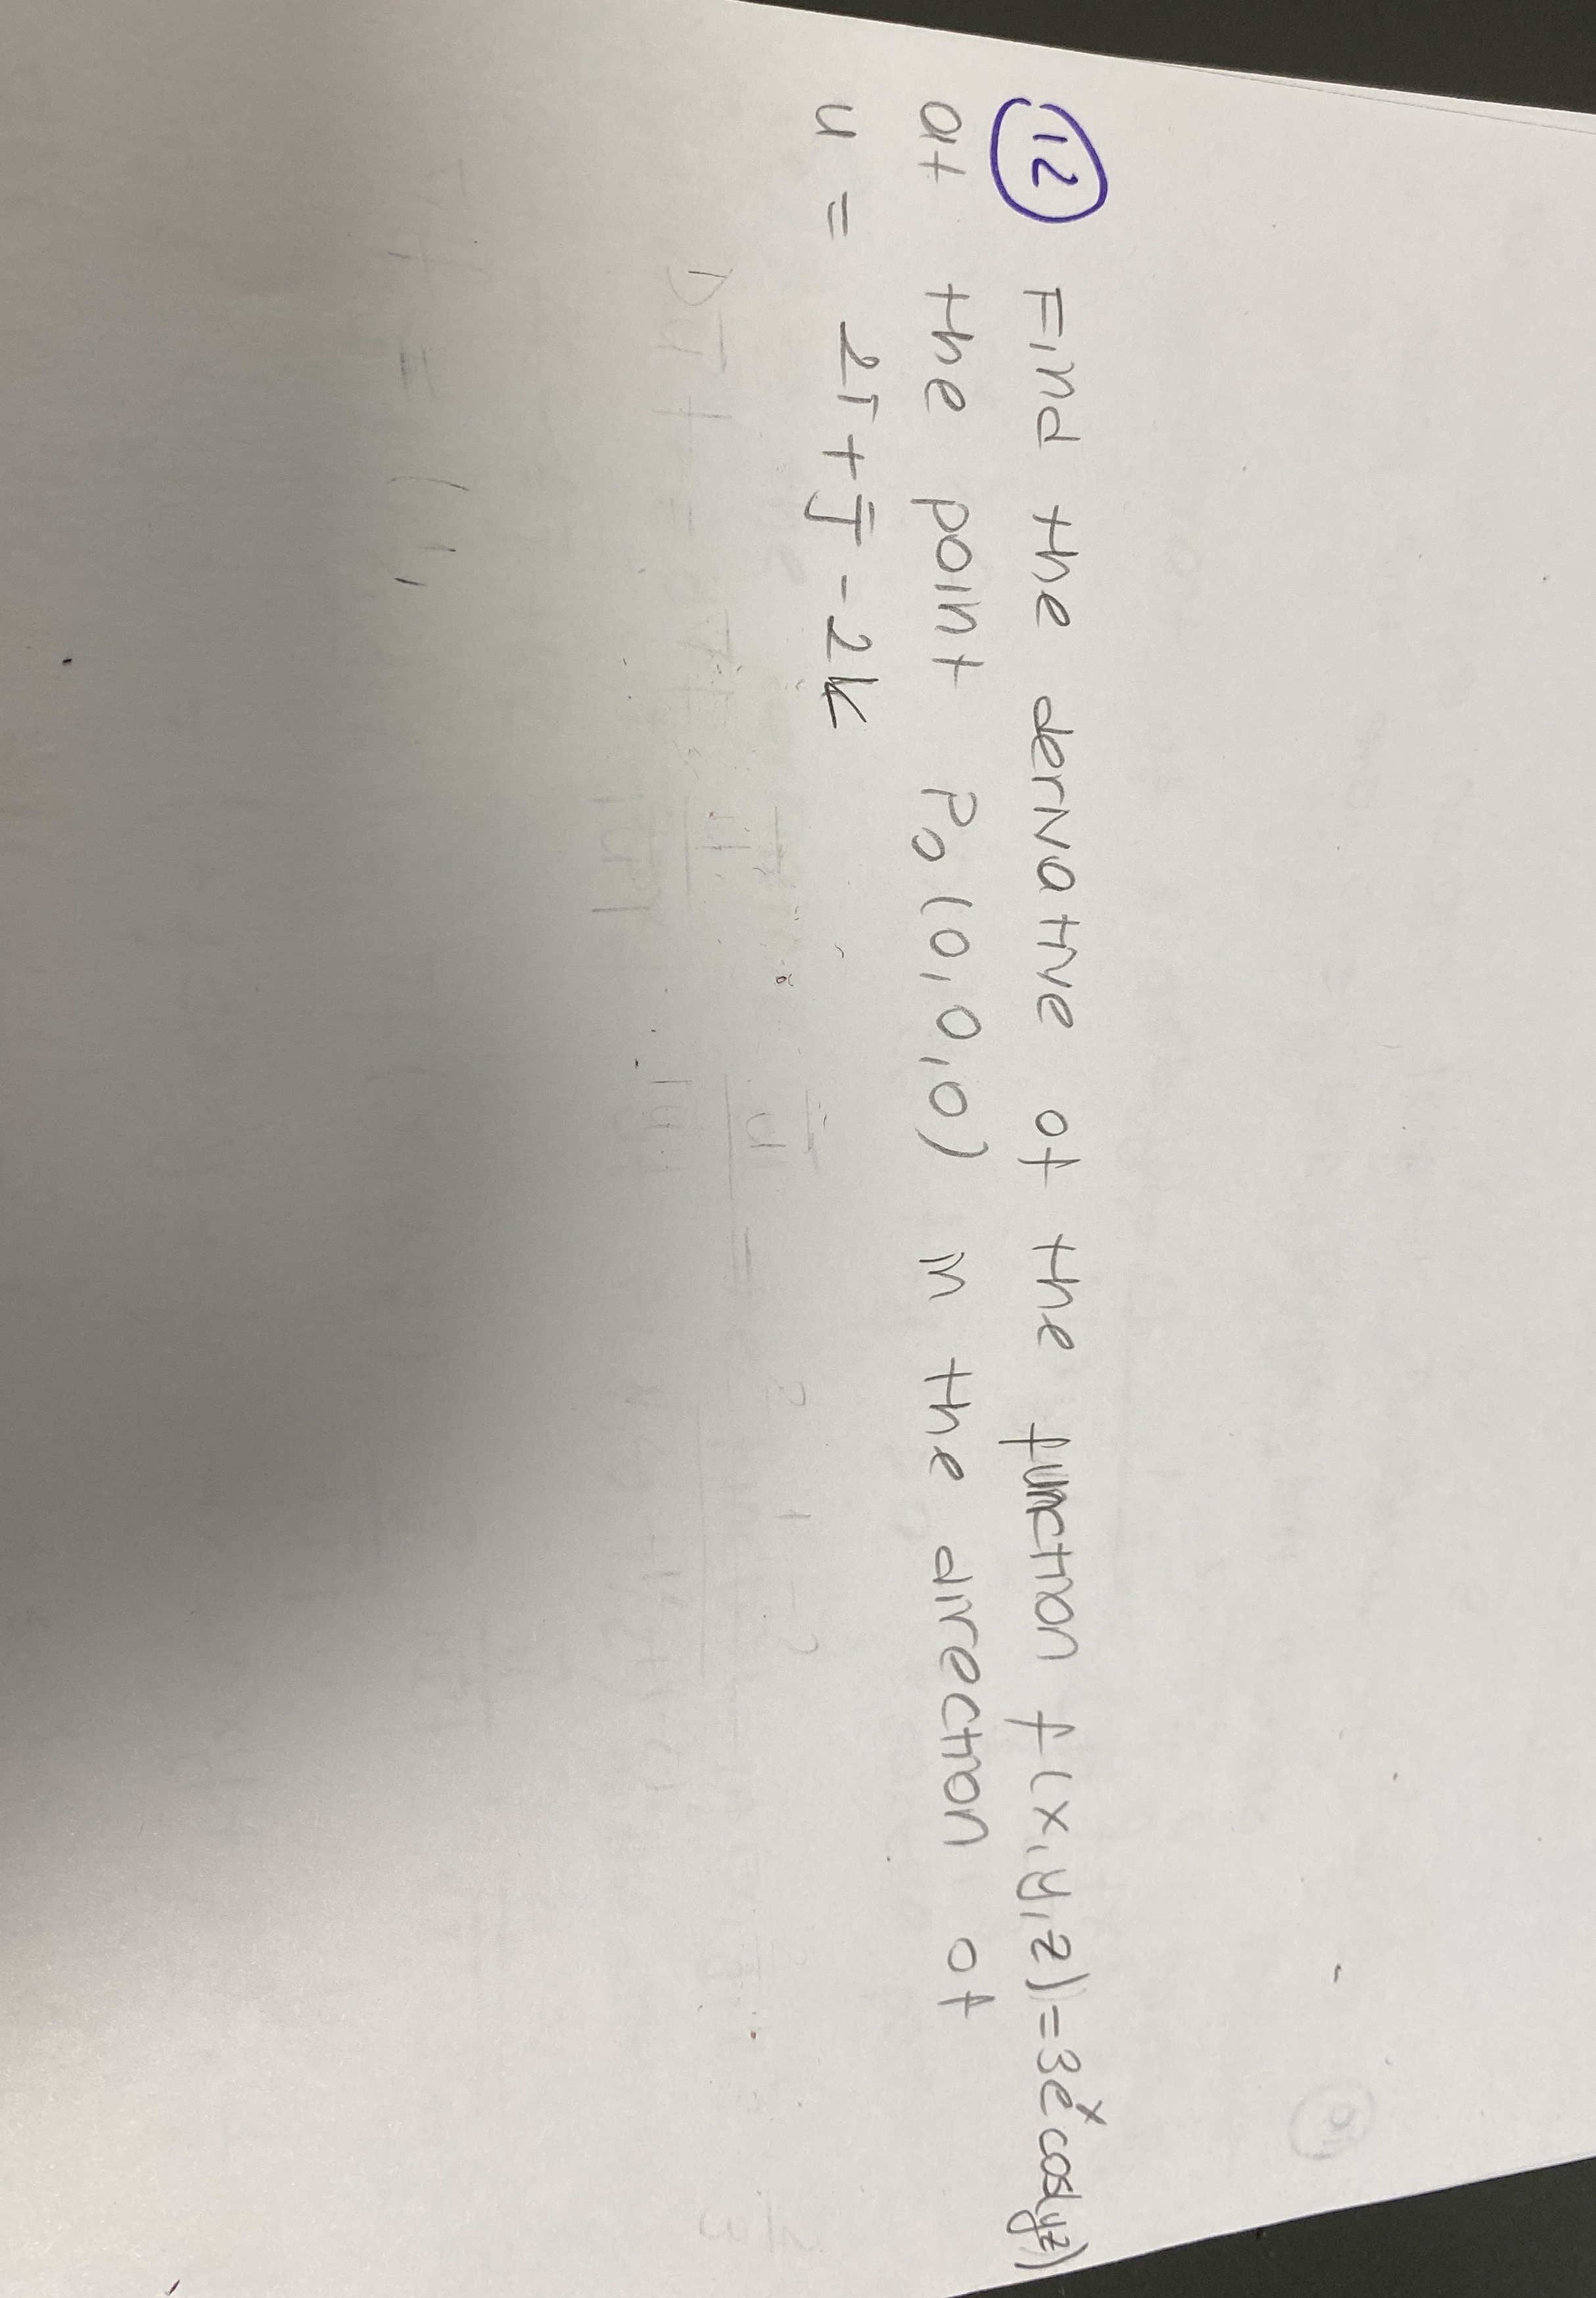 12 Find the derivative of the function f(x,y,z)=3eˣcos(yz)
at the point P₀(0,0,0) in the direction of
u = 2i + j - 2k